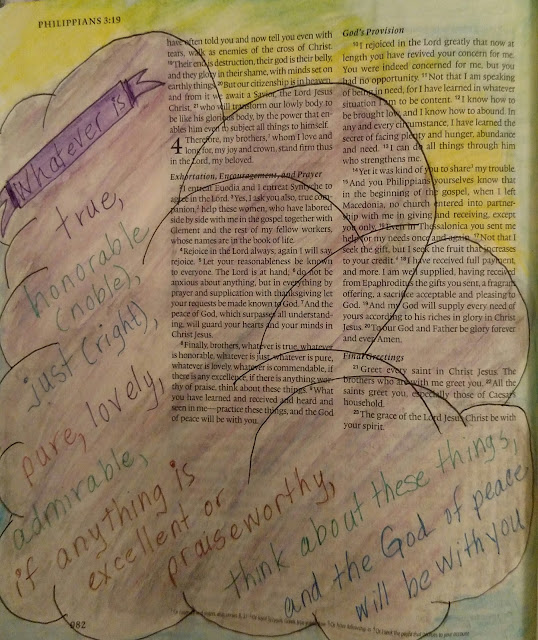 PHILIPPIANS 3:19
have often told you and now tell you even with
tears, walk as enemies of the cross of Christ.
19 Their end is destruction, their god is their belly,
and they glory in their shame, with minds set on
earthly things. 20 But our citizenship is in heaven,
and from it we await a Savior, the Lord Jesus
Christ, 21 who will transform our lowly body to
be like his glorious body, by the power that en-
ables him even to subject all things to himself.
4 Therefore, my brothers, whom I love and
long for, my joy and crown, stand firm thus
in the Lord, my beloved.
Exhortation, Encouragement, and Prayer
2 I entreat Euodia and I entreat Syntyche to
agree in the Lord. 3 Yes, I ask you also, true com-
panion, help these women, who have labored
side by side with me in the gospel together with
Clement and the rest of my fellow workers,
whose names are in the book of life.
4 Rejoice in the Lord always; again I will say,
rejoice. 5 Let your reasonableness be known
to everyone. The Lord is at hand; 6 do not be
anxious about anything, but in everything by
prayer and supplication with thanksgiving let
your requests be made known to God. 7 And the
peace of God, which surpasses all understand-
ing, will guard your hearts and your minds in
Christ Jesus.
8 Finally, brothers, whatever is true, whatever
is honorable, whatever is just, whatever is pure,
whatever is lovely, whatever is commendable, if
there is any excellence, if there is anything wor-
thy of praise, think about these things. 9 What
you have learned and received and heard and
seen in me—practice these things, and the God
of peace will be with you.
God's Provision
10 I rejoiced in the Lord greatly that now at
length you have revived your concern for me.
You were indeed concerned for me, but you
had no opportunity. 11 Not that I am speaking
of being in need, for I have learned in whatever
situation I am to be content. 12 I know how to
be brought low, and I know how to abound. In
any and every circumstance, I have learned the
secret of facing plenty and hunger, abundance
and need. 13 I can do all things through him
who strengthens me.
14 Yet it was kind of you to share my trouble.
15 And you Philippians yourselves know that
in the beginning of the gospel, when I left
Macedonia, no church entered into partner-
ship with me in giving and receiving, except
you only. 16 Even in Thessalonica you sent me
help for my needs once and again. 17 Not that I
seek the gift, but I seek the fruit that increases
to your credit. 18 I have received full payment,
and more. I am well supplied, having received
from Epaphroditus the gifts you sent, a fragrant
offering, a sacrifice acceptable and pleasing to
God. 19 And my God will supply every need of
yours according to his riches in glory in Christ
Jesus. 20 To our God and Father be glory forever
and ever. Amen.
Final Greetings
21 Greet every saint in Christ Jesus. The
brothers who are with me greet you. 22 All the
saints greet you, especially those of Caesar's
household.
23 The grace of the Lord Jesus Christ be with
your spirit.
Whatever is
true,
honorable
(noble),
just (right),
pure, lovely,
admirable,
if anything is
excellent or
praiseworthy,
think about these things,
and the God of peace
will be with you
982